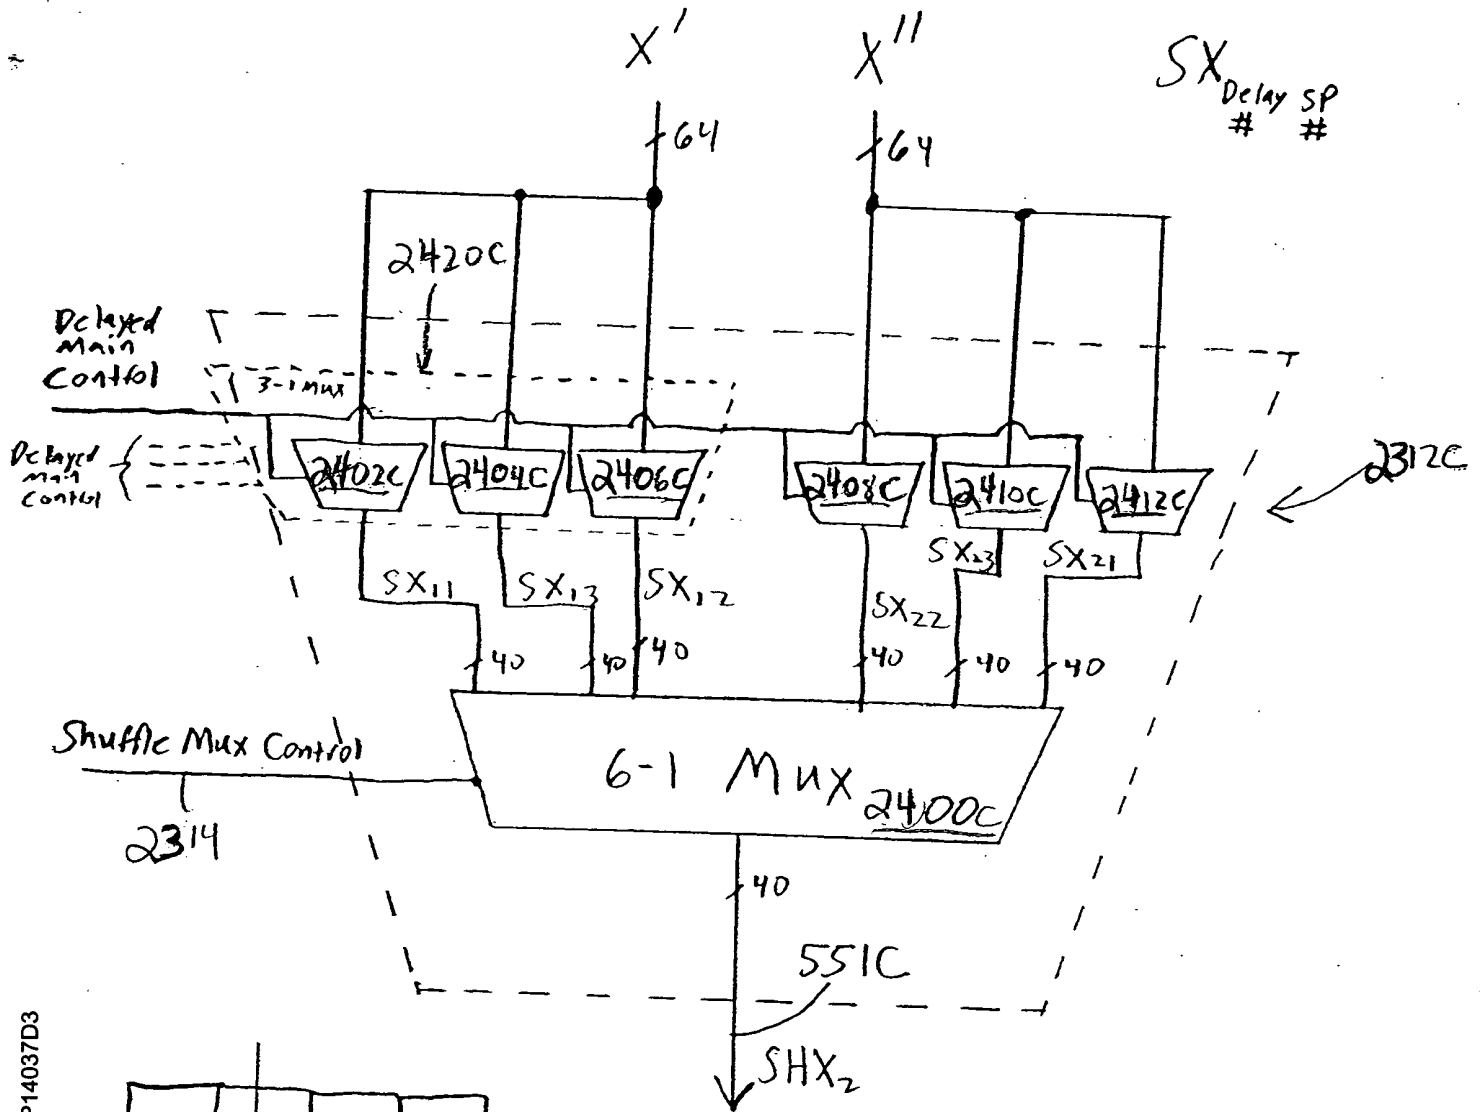 X' X'' SX Delay SP
# #
64 64
2420C
Delayed
Main
Control
3-1 Mux
Delayed
Main
Control
2402C 2404C 2406C 2408C 2410C 2412C
2312C
SX11 SX13 SX12 SX22 SX23 SX21
40 40 40 40 40 40
Shuffle Mux Control
2314
6-1 Mux 2400C
40
551C
SHX2
P14037D3